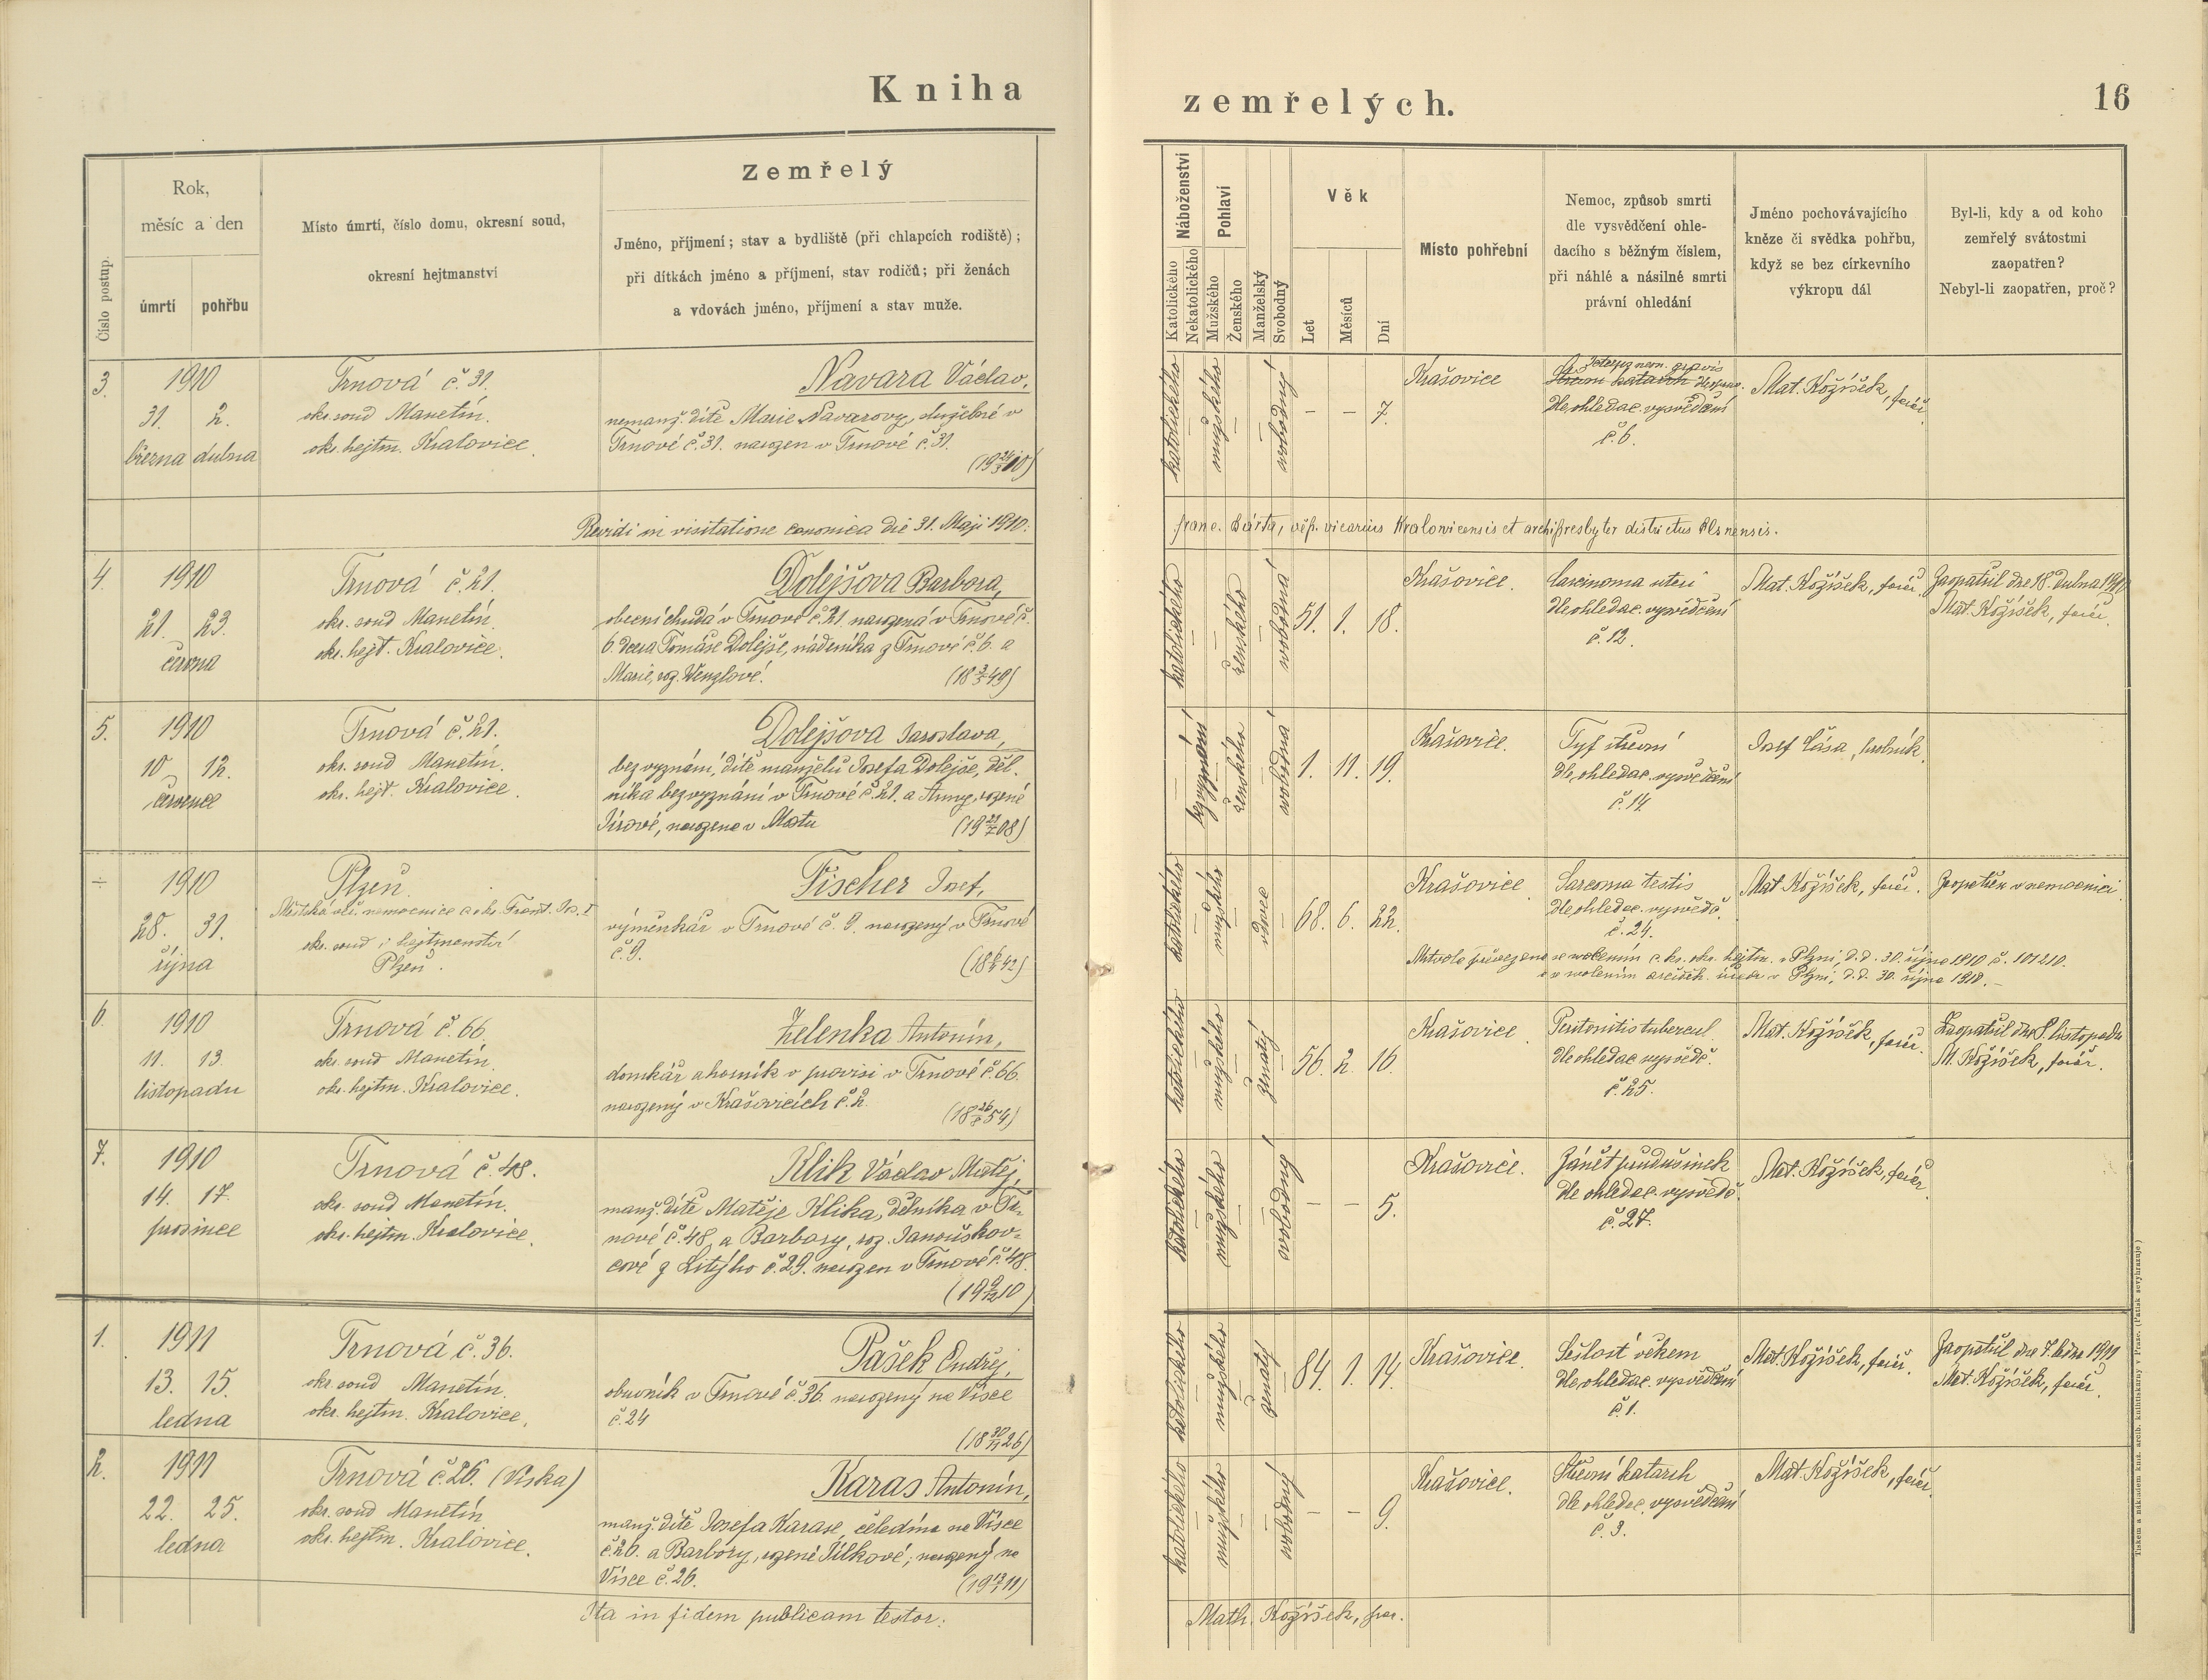 Kniha
zemřelých.
16
Číslo postup.
Rok,
měsíc a den
úmrtí
pohřbu
Místo úmrtí, číslo domu, okresní soud,
okresní hejtmanství
Zemřelý
Jméno, příjmení; stav a bydliště (při chlapcích rodiště);
při dítkách jméno a příjmení, stav rodičů; při ženách
a vdovách jméno, příjmení a stav muže.
Náboženství
Katolického
Nekatolického
Pohlaví
Mužského
Ženského
Manželský
Svobodný
Věk
Let
Měsíců
Dní
Místo pohřební
Nemoc, způsob smrti
dle vysvědčení ohle-
dacího s běžným číslem,
při náhlé a násilné smrti
právní ohledání
Jméno pochovávajícího
kněze či svědka pohřbu,
když se bez církevního
výkropu dál
Byl-li, kdy a od koho
zemřelý svátostmi
zaopatřen?
Nebyl-li zaopatřen, proč?
3.
1910
31. 2.
března dubna
Trnová č. 31.
okr. soud Manetín.
okr. hejtm. Kralovice.
Navara Václav,
nemanž. dítě Marie Navarovy, služebné v
Trnové č. 31. narozen v Trnové č. 31.
(19 24/3 10)
katolického
mužského
svobodný
– – 7.
Krašovice
Icterus neon. gravis
Střevní katarrh
dle ohledac. vysvědčení
č. 6.
Mat. Kožíšek, farář
Revidi in visitatione canonica die 31. Maji 1910:
Franc. Bárta, vicarius Kralovicensis et archipresbyter districtus Plsnensis.
4.
1910
21. 23.
června
Trnová č. 21.
okr. soud Manetín.
okr. hejt. Kralovice.
Dolejšova Barbora,
obecní chudá v Trnové č. 21. narozená v Trnové č.
6. dcera Tomáše Dolejše, nádeníka z Trnové č. 6. a
Marie, roz. Wenzlové.
(18 3/5 49)
katolického
ženského
svobodná
51. 1. 18.
Krašovice.
Carcinoma uteri
dle ohledac. vysvědčení
č. 12.
Mat. Kožíšek, farář.
Zaopatřil dne 18. dubna 1910
Mat. Kožíšek, farář.
5.
1910
10 12.
července
Trnová č. 21.
okr. soud Manetín.
okr. hejt. Kralovice.
Dolejšova Jaroslava,
bez vyznání, dítě manželů Josefa Dolejše, děl-
níka bez vyznání v Trnové č. 21. a Anny, rozené
Jírové, narozena v Mostu
(19 21/7 08)
bezvyznání
ženského
svobodná
1. 11. 19.
Krašovice.
Tyf střevní
dle ohledac. vysvědčení
č. 14.
Josef Čása, hrobník.
÷
1910
28. 31.
října
Plzeň.
Městská vš. nemocnice c. kr. Frant. Jos. I.
okr. soud i hejtmanství
Plzeň.
Fischer Josef,
výměnkář v Trnové č. 9. narozený v Trnové
č. 9.
(18 6/4 42)
katolického
mužského
vdovec
68. 6. 22.
Krašovice.
Sarcoma testis
dle ohledac. vysvědč.
č. 24.
Mat. Kožíšek, farář.
Zaopatřen v nemocnici.
Mrtvola převezena se svolením c. kr. okr. hejtm. v Plzni, d. d. 30. října 1910 č. 101210.
a se svolením arciděk. úřadu v Plzni, d. d. 30. října 1910. –
6.
1910
11. 13.
listopadu
Trnová č. 66.
okr. soud Manetín.
okr. hejtm. Kralovice.
Zelenka Antonín,
domkář a horník v provisi v Trnové č. 66.
narozený v Krašovicích č. 2.
(18 26/8 54)
katolického
mužského
ženatý
56. 2. 16.
Krašovice.
Peritonitis tubercul.
dle ohledac. vysvědč.
č. 25.
Mat. Kožíšek, farář.
Zaopatřil dne 8. listopadu
M. Kožíšek, farář.
7.
1910
14. 17.
prosince
Trnová č. 48.
okr. soud Manetín.
okr. hejtm. Kralovice.
Klik Václav Matěj,
manž. dítě Matěje Klika, dělníka v Tr-
nové č. 48. a Barbory, roz. Janouškov-
cové z Litého č. 29. narozen v Trnové č. 48.
(19 9/12 10)
katolického
mužského
svobodný
– – 5.
Krašovice.
Zánět průdušinek
dle ohledac. vysvědč.
č. 27.
Mat. Kožíšek, farář
1.
1911
13. 15.
ledna
Trnová č. 36.
okr. soud Manetín.
okr. hejtm. Kralovice.
Pašek Ondřej,
obuvník v Trnové č. 36. narozený na Vísce
č. 24
(18 30/11 26)
katolického
mužského
ženatý
84. 1. 14.
Krašovice.
Sešlost věkem
dle ohledac. vysvědčení
č. 1.
Mat. Kožíšek, farář.
Zaopatřil dne 7. ledna 1911
Mat. Kožíšek, farář.
2.
1911
22. 25.
ledna
Trnová č. 26. (Víska)
okr. soud Manetín
okr. hejtm. Kralovice.
Karas Antonín,
manž. dítě Josefa Karase, čeledína na Vísce
č. 26. a Barbory, rozené Jílkové; narozený na
Vísce č. 26.
(19 13/1 11)
katolického
mužského
svobodný
– – 9.
Krašovice.
Střevní katarrh
dle ohledac. vysvědčení
č. 3.
Mat. Kožíšek, farář
Ita in fidem publicam testor:
Math. Kožíšek, far.